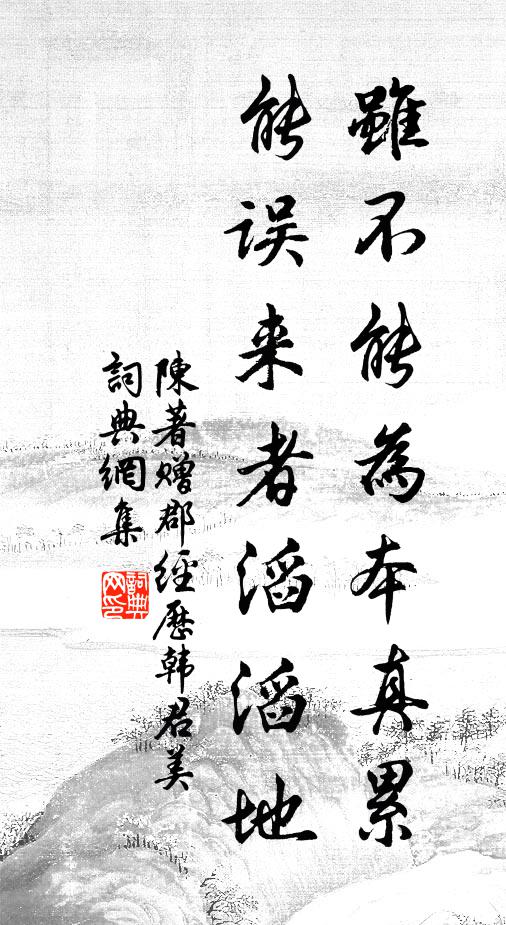 雖不能為本真累
能误来者滔滔地
陳著赠郡經歷韩君美
詞典網集
詞典
网印